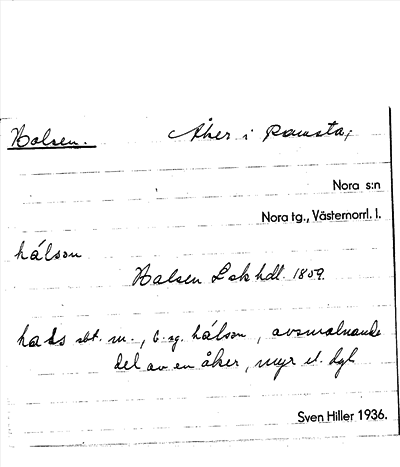 Halsen. Åker i Ramsta,
Nora s:n
Nora tg., Västernorrl. l.
hálson
Halsen Lsk hdl. 1809.
hals sbt. m., b. sg. hálson, avsmalnande
del av en åker, myr el. dyl.
Sven Hiller 1936.